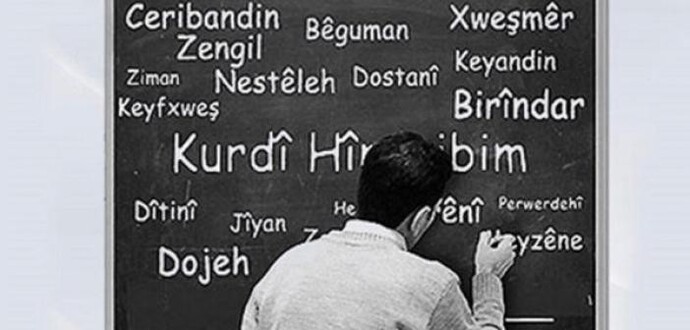 Ceribandin Bêguman Xweşmêr
Zengil
Ziman Nestêleh Dostanî Keyandin
Keyfxweş Birîndar
Kurdî
Dîtinî Jîyan Perwerdehî
Dojeh